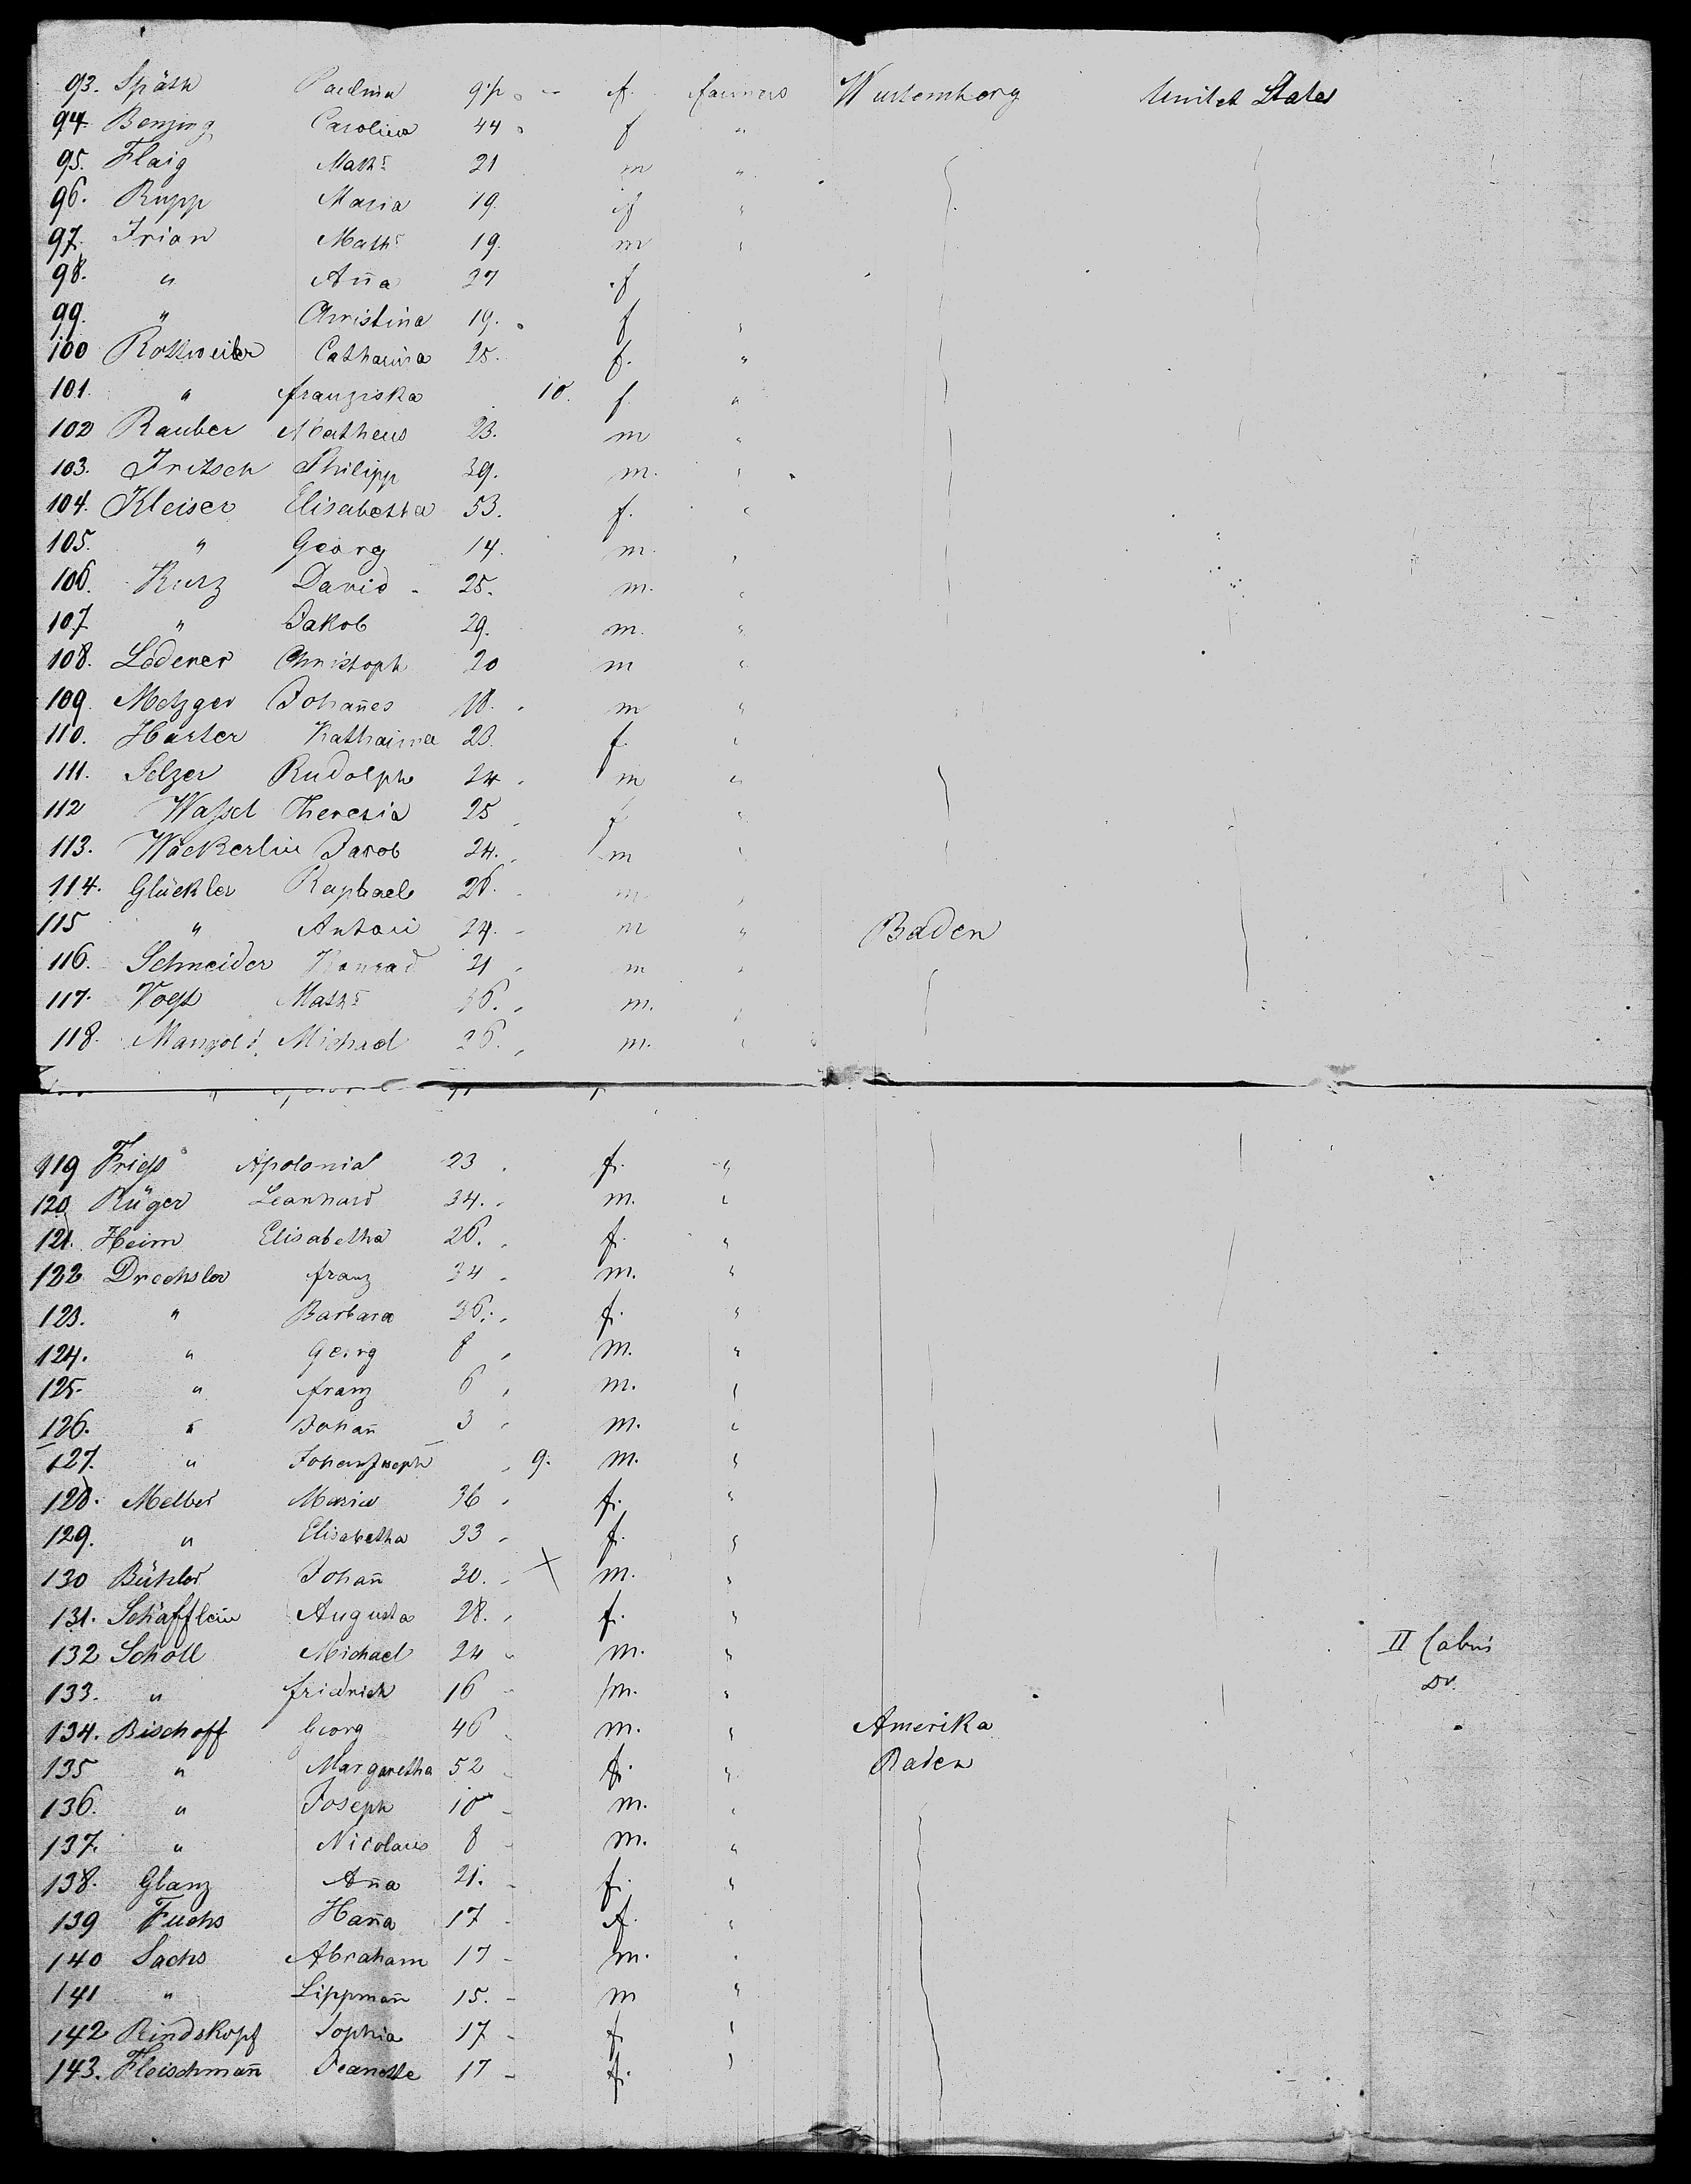 93. Späth Paulina f. farmers Wurtemberg Unitet States
94. Benzing Carolina 44 f "
95. Flaig Maths 21 m "
96. Rupp Maria 19. f "
97. Irion Maths 19. m "
98. " Ana 27 f
99. " Christina 19. f "
100 Rottweiler Catharina 25. f. "
101. " franziska 10. f. "
102 Rauber Matheus 23. m "
103. Fritsch Philipp 39. m. "
104. Kleiser Elisabetha 53. f. "
105. " Georg 14. m. "
106. Kurz David 25. m. "
107 " Jakob 29. m. "
108. Loderer Christoph 20 m "
109. Metzger Johañes 18. m "
110. Harter Katharina 23. f. "
111. Selzer Rudolph 24 m "
112 Waſsel Theresia 25 f "
113. Wackerlin Jacob 24. m "
114. Glückler Raphael 26. m "
115 " Anton 24. m " Baden
116. Schneider Konrad 21 m "
117. Vogt Maths m. "
118. Mangold Michael 26. m. "
119 Frieſs Apolonia 23 f. "
120 Rüger Leonhard 34. m. "
121. Heim Elisabetha 26. f. "
122 Drechsler franz 34 m. "
123. " Barbara 36. f. "
124. " Georg 8 m. "
125. " franz 6 m. "
126. " Johañ 3 m. "
127. " Johan Joseph 9. m. "
128. Melber Maria 36 f. "
129. " Elisabetha 33 f. "
130 Bühler Johañ 30. X m. "
131. Schäfflein Augusta 28. f. "
132 Scholl Michael 24 m. " II
133. " fridrich 16 m. " Do.
134. Bischoff Georg 46 m. " Amerika
135 " Margaretha 52 f. " Baden
136. " Joseph 10 m. "
137. " Nicolaus 8 m. "
138. Glanz Aña 21. f. "
139 Fuchs Haña 17 f. "
140 Sachs Abraham 17 m. "
141 " Lippmañ 15. m "
142 Rindskopf Sophia 17 f. "
143. Fleischmañ Jeanette 17 f. "